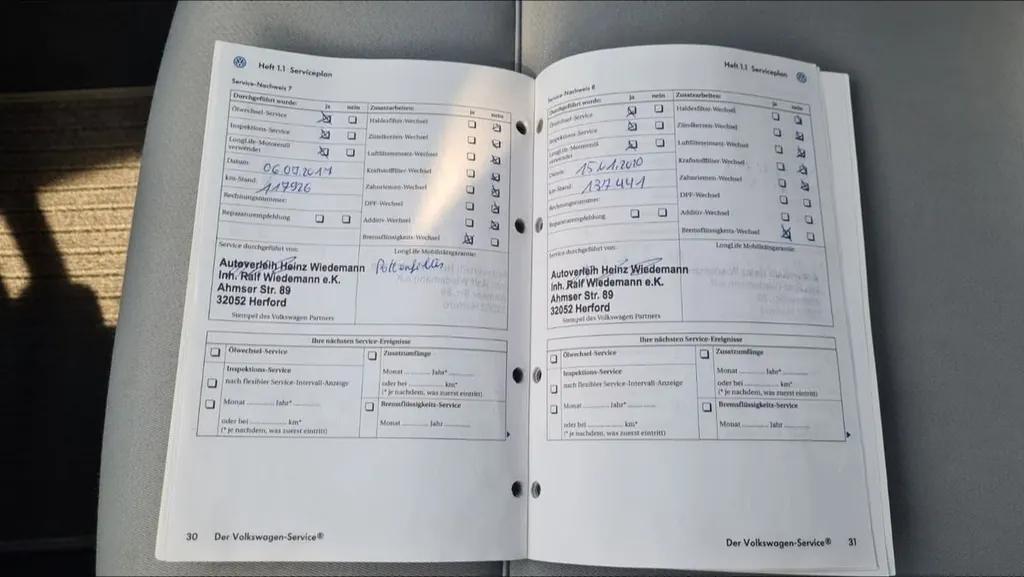 Heft 1.1 Serviceplan
Service-Nachweis 7
Durchgeführt wurde: ja nein
Ölwechsel-Service
Inspektions-Service
LongLife-Motorenöl verwendet
Datum: 06.09.2017
km-Stand: 117926
Rechnungsnummer:
Reparaturempfehlung
Zusatzarbeiten: ja nein
Haldexfilter-Wechsel
Zündkerzen-Wechsel
Luftfiltereinsatz-Wechsel
Kraftstofffilter-Wechsel
Zahnriemen-Wechsel
DPF-Wechsel
Additiv-Wechsel
Bremsflüssigkeits-Wechsel
Service durchgeführt von:
LongLife Mobilitätsgarantie:
Autoverleih Heinz Wiedemann
Inh. Ralf Wiedemann e.K.
Ahmser Str. 89
32052 Herford
Pollenfilter
Stempel des Volkswagen Partners
Ihre nächsten Service-Ereignisse
Ölwechsel-Service
Inspektions-Service
nach flexibler Service-Intervall-Anzeige
Monat ............ Jahr* ............
oder bei ............ km*
(* je nachdem, was zuerst eintritt)
Zusatzumfänge
Monat ............ Jahr* ............
oder bei ............ km*
(* je nachdem, was zuerst eintritt)
Bremsflüssigkeits-Service
Monat ............ Jahr ............
30 Der Volkswagen-Service®
Heft 1.1 Serviceplan
Service-Nachweis 8
Durchgeführt wurde: ja nein
Ölwechsel-Service
Inspektions-Service
LongLife-Motorenöl verwendet
Datum: 15.01.2020
km-Stand: 137441
Rechnungsnummer:
Reparaturempfehlung
Zusatzarbeiten: ja nein
Haldexfilter-Wechsel
Zündkerzen-Wechsel
Luftfiltereinsatz-Wechsel
Kraftstofffilter-Wechsel
Zahnriemen-Wechsel
DPF-Wechsel
Additiv-Wechsel
Bremsflüssigkeits-Wechsel
Service durchgeführt von:
LongLife Mobilitätsgarantie:
Autoverleih Heinz Wiedemann
Inh. Ralf Wiedemann e.K.
Ahmser Str. 89
32052 Herford
Stempel des Volkswagen Partners
Ihre nächsten Service-Ereignisse
Ölwechsel-Service
Inspektions-Service
nach flexibler Service-Intervall-Anzeige
Monat ............ Jahr* ............
oder bei ............ km*
(* je nachdem, was zuerst eintritt)
Zusatzumfänge
Monat ............ Jahr* ............
oder bei ............ km*
(* je nachdem, was zuerst eintritt)
Bremsflüssigkeits-Service
Monat ............ Jahr ............
Der Volkswagen-Service® 31